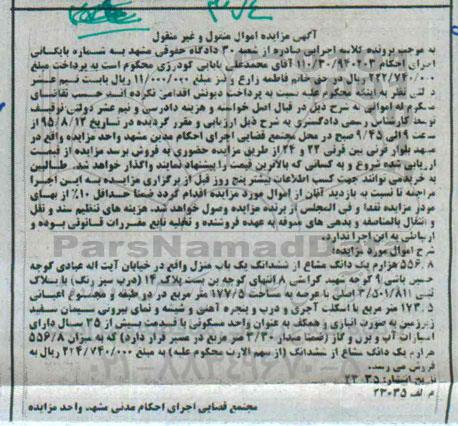 آگهی مزایده اموال منقول و غیر منقول
به موجب پرونده کلاسه اجرایی صادره از شعبه ۳۰ دادگاه حقوقی مشهد به شماره بایگانی
اجرای احکام ۱۱۰/۳۰/۹۴۰۲۰۳ آقای محمدعلی بابایی گودرزی محکوم است به پرداخت مبلغ
۲۲۲/۷۴۰/۰۰۰ ریال در حق خانم فاطمه زارع و نیز مبلغ ۱۱/۰۰۰/۰۰۰ ریال بابت نیم عشر
دولتی نظر به اینکه محکوم علیه نسبت به پرداخت دیونش اقدامی نکرده اند حسب تقاضای
محکوم له اموالی به شرح ذیل در قبال اصل خواسته و هزینه دادرسی و نیم عشر دولتی توقیف و
توسط کارشناس رسمی دادگستری به شرح ذیل ارزیابی و مقرر گردیده در تاریخ ۹۵/۸/۱۲ از
ساعت ۹ الی ۹/۴۵ صبح در محل مجتمع قضایی اجرای احکام مدنی مشهد واحد مزایده واقع در
مشهد بلوار قرنی بین قرنی ۲۲ و ۲۴ از طریق مزایده حضوری به فروش برسد مزایده از قیمت
ارزیابی شده شروع و به کسانی که بالاترین قیمت را پیشنهاد نمایند واگذار خواهد شد. طالبین
به خرید می توانند جهت کسب اطلاعات بیشتر پنج روز قبل از برگزاری مزایده به این اجرا
مراجعه تا نسبت به بازدید آنان از اموال مورد مزایده اقدام گردد ضمنا حداقل ۱۰٪ از بهای
مورد مزایده نقدا و فی المجلس از برنده مزایده وصول خواهد شد. هزینه های تنظیم سند و نقل
و انتقال بالمناصفه و بدهی های معوقه به عهده فروشنده و تخلیه تابع مقررات قانونی بوده و
ارتباطی به این اجرا ندارد.
شرح اموال مورد مزایده:
۵۵۶/۸ هزارم یک دانگ مشاع از ششدانگ یک باب منزل واقع در خیابان آیت اله عبادی کوچه
حسین باشی ۹ کوچه شهید کراشی ۸ انتهای کوچه بن بست پلاک ۱۴ (درب سبز رنگ) با پلاک
ثبتی ۳/۵۰۱/۸۱۱ اصلی با عرصه به مساحت ۱۷۷/۵ متر مربع در دو طبقه و مجموع اعیانی
۱۷۳/۵ متر مربع با اسکلت آجری و درب و پنجره آهنی و شیشه و نمای بیرونی سیمان سفید
زیرزمین به صورت انباری و همکف به عنوان واحد مسکونی با قدمت بیش از ۲۵ سال دارای
امتیازات آب و برق و گاز (ضمنا میدار ۳/۳۰ متر مربع در مسیر قرار دارد) که به میزان ۵۵۶/۸
هزارم یک دانگ مشاع از ششدانگ (از سهم الارث محکوم علیه) به مبلغ ۲۲۴/۷۴۰/۰۰۰ ریال به
فروش می رسد.
م الف ۲۳۰۳۵
مجتمع قضایی اجرای احکام مدنی مشهد واحد مزایده
ParsNamadData